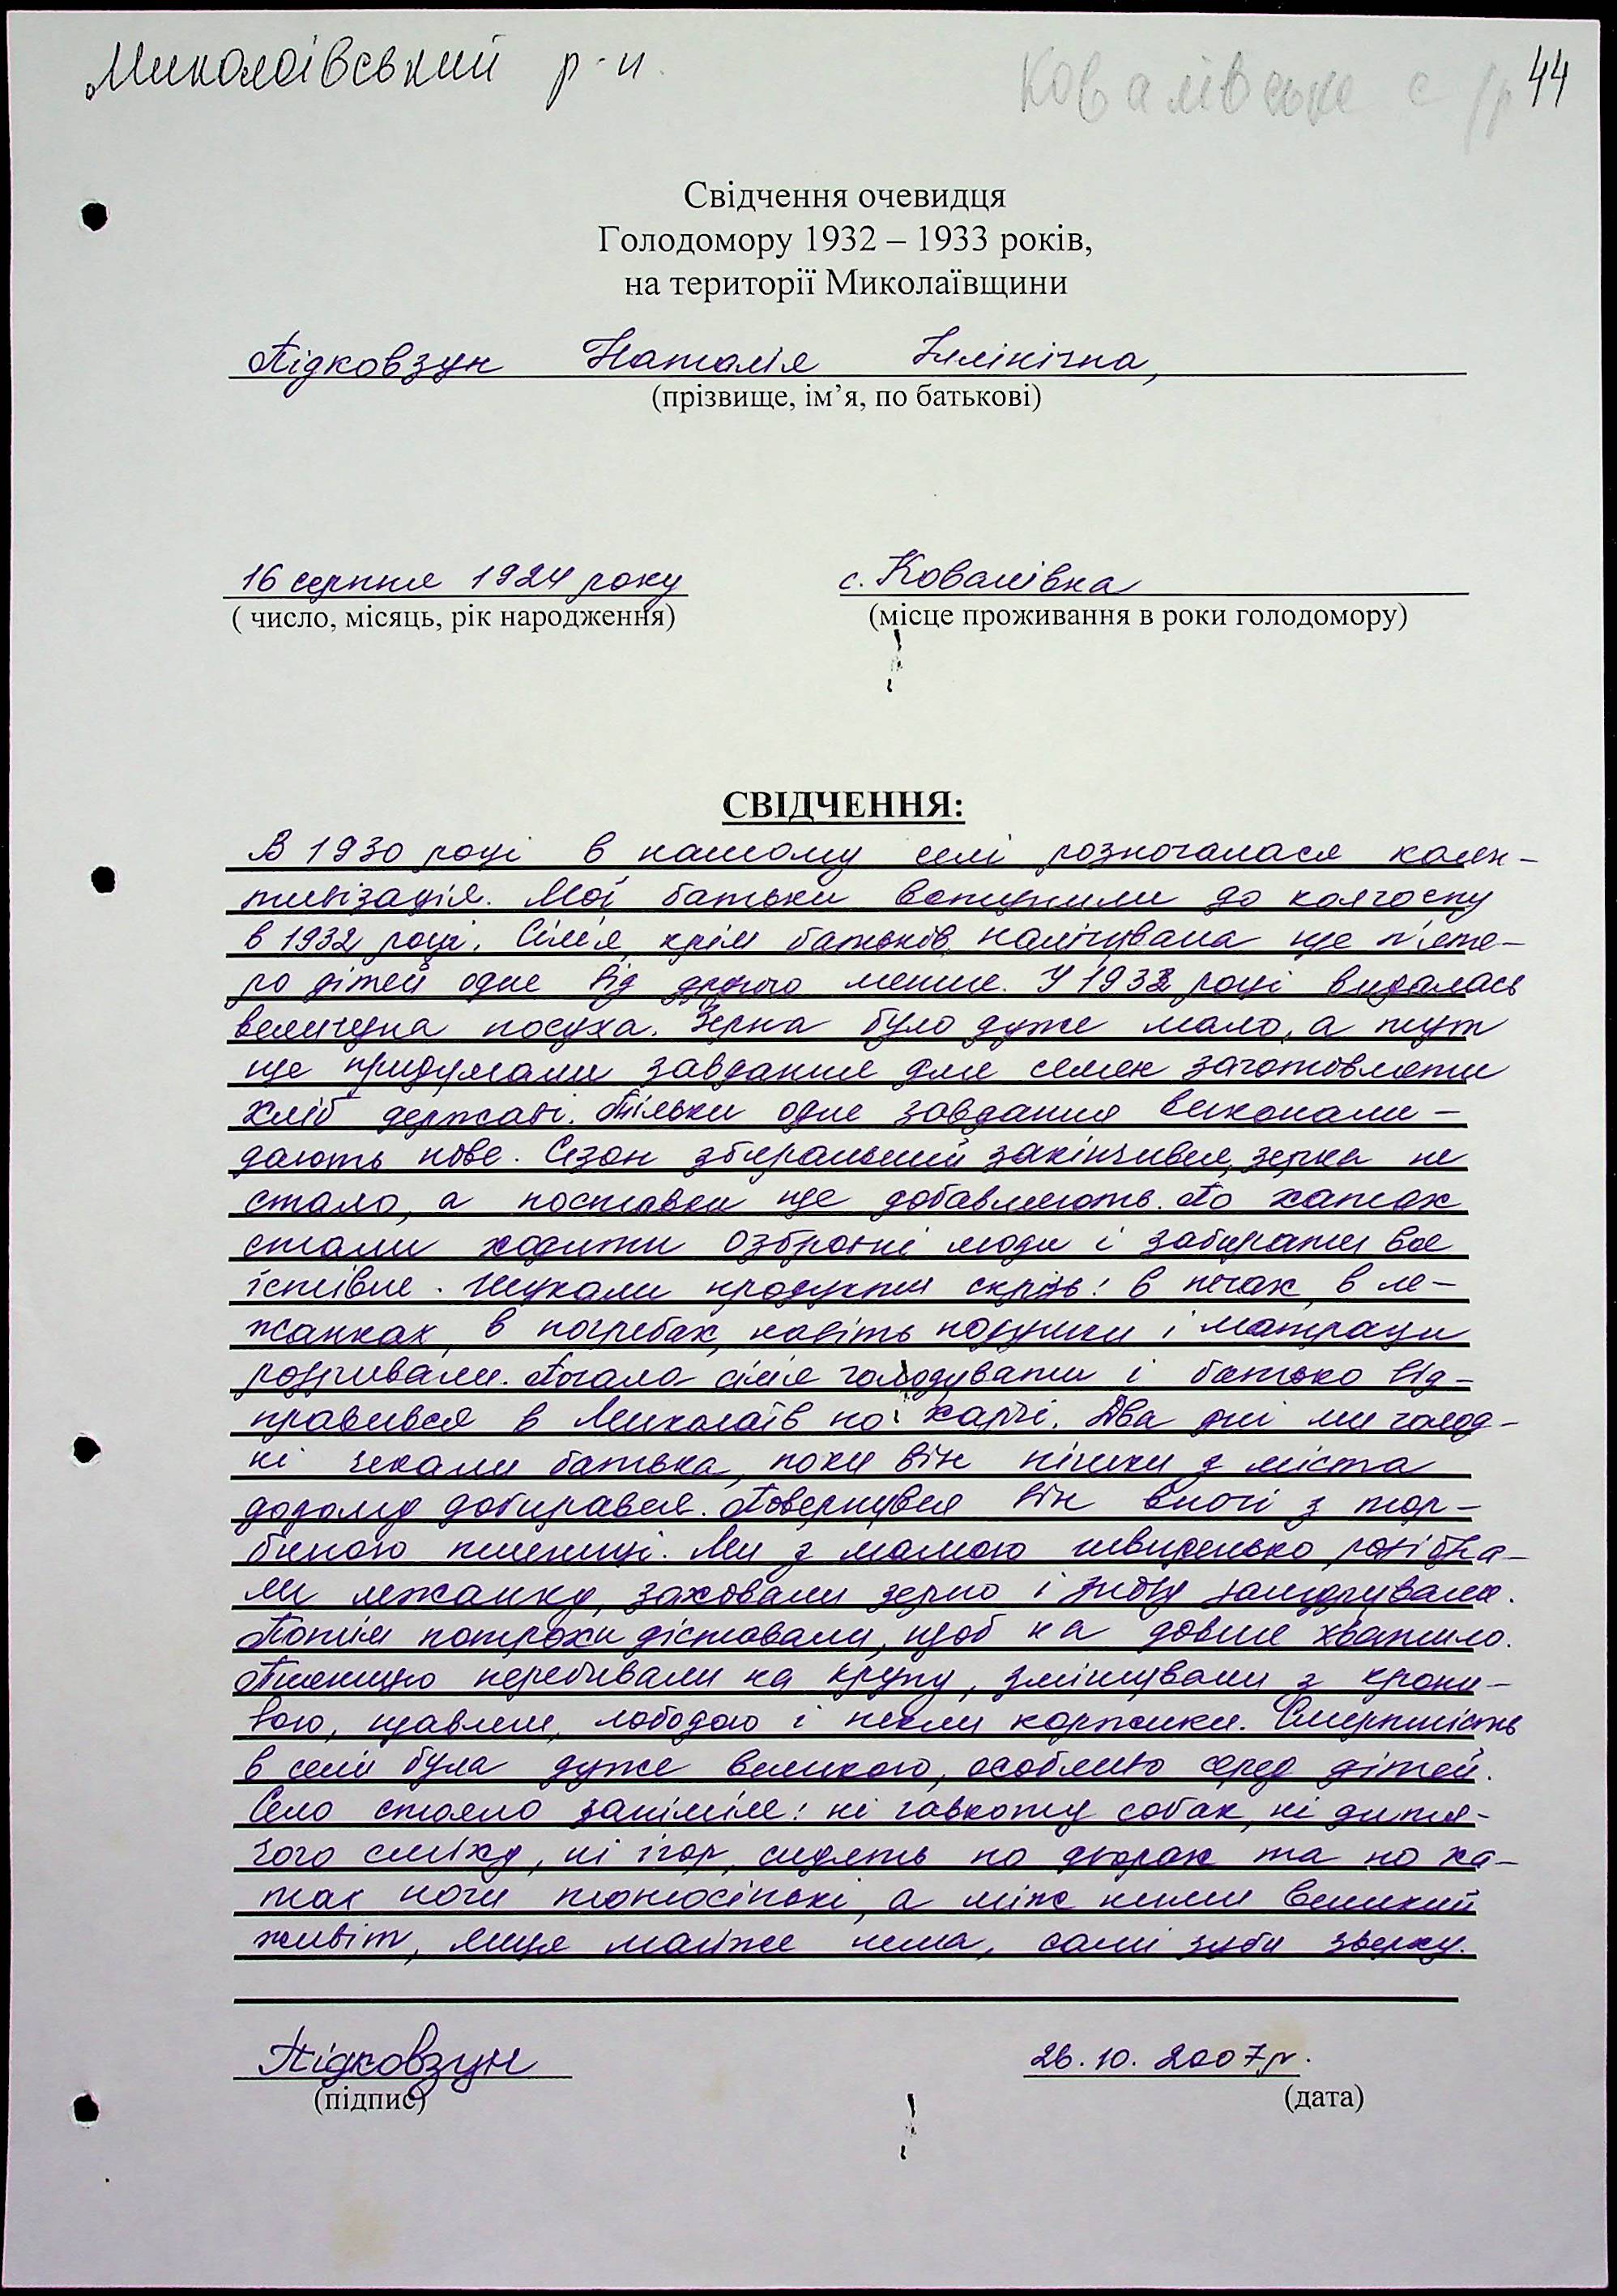 Миколаївський р-н
Ковалівська с/р
44
Свідчення очевидця
Голодомору 1932 – 1933 років,
на території Миколаївщини
Підковзун Наталія Іллінічна,
(прізвище, ім’я, по батькові)
16 серпня 1924 року
с. Ковалівка
( число, місяць, рік народження)
(місце проживання в роки голодомору)
СВІДЧЕННЯ:
В 1930 році в нашому селі розпочалася колек-
тивізація. Мої батьки вступили до колгоспу
в 1932 році. Сім'я, крім батьків, налічувала ще п'яте-
ро дітей одне від другого менше. У 1932 році видалась
величезна посуха. Зерна було дуже мало, а тут
ще придумали завдання для семей заготовляти
хліб державі. Тільки одне завдання виконали –
дають нове. Сезон збиральний закінчився, зерна не
стало, а поставки ще добавляють. По хатах
стали ходити озброєні люди і забирати все
їстівне. Шукали продукти скрізь: в печах, в ле-
жанках, в погребах, навіть подушки і матраци
розривали. Почала сім'я голодувати і батько від-
правився в Миколаїв по харчі. Два дні ми голод-
ні чекали батька, поки він пішки з міста
додому добирався. Повернувся він вночі з тор-
биною пшениці. Ми з мамою швиденько розібра-
ли лежанку, заховали зерно і знову замурували.
Потім потрохи діставали, щоб на довше хватило.
Пшеницю перебивали на крупу, змішували з кропи-
вою, щавлем, лободою і пекли коржики. Смертність
в селі була дуже великою, особливо серед дітей.
Село стояло заніміле: ні гавкоту собак, ні дитя-
чого сміху, ні ігор, сидять по дворах та по ха-
тах ноги тонюсінькі, а між ними великий
живіт, лиця майже нема, самі зуби зверху.
Підковзун
26.10.2007р.
(підпис)
(дата)